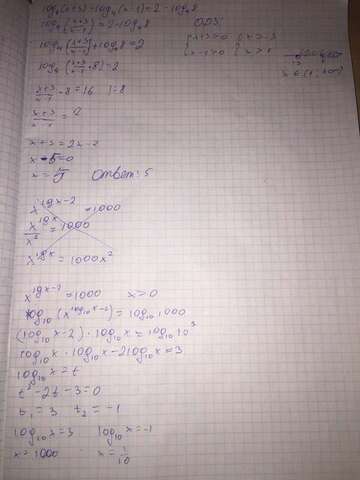 log₄(x+3) - log₄(x-1) = 2 - log₄8
log₄(x+3 / x-1) = 2 - log₄8 ОДЗ:
log₄(x+3 / x-1) + log₄8 = 2 { x+3>0 { x>-3
{ x-1>0 { x>1
log₄(x+3 / x-1 · 8) = 2
x+3 / x-1 · 8 = 16 | :8
x+3 / x-1 = 2
x+3 = 2x-2
x-5=0
x = 5 Ответ: 5
x^(lgx-2) = 1000
x^(lgx) / x² = 1000
x^(lgx) = 1000x²
x^(lgx-2) = 1000 x>0
log₁₀(x^(log₁₀x-2)) = log₁₀1000
(log₁₀x-2)·log₁₀x = log₁₀10³
log₁₀x·log₁₀x-2log₁₀x=3
log₁₀x = t
t²-2t-3=0
t₁=3 t₂=-1
log₁₀x=3 log₁₀x=-1
x=1000 x=1/10